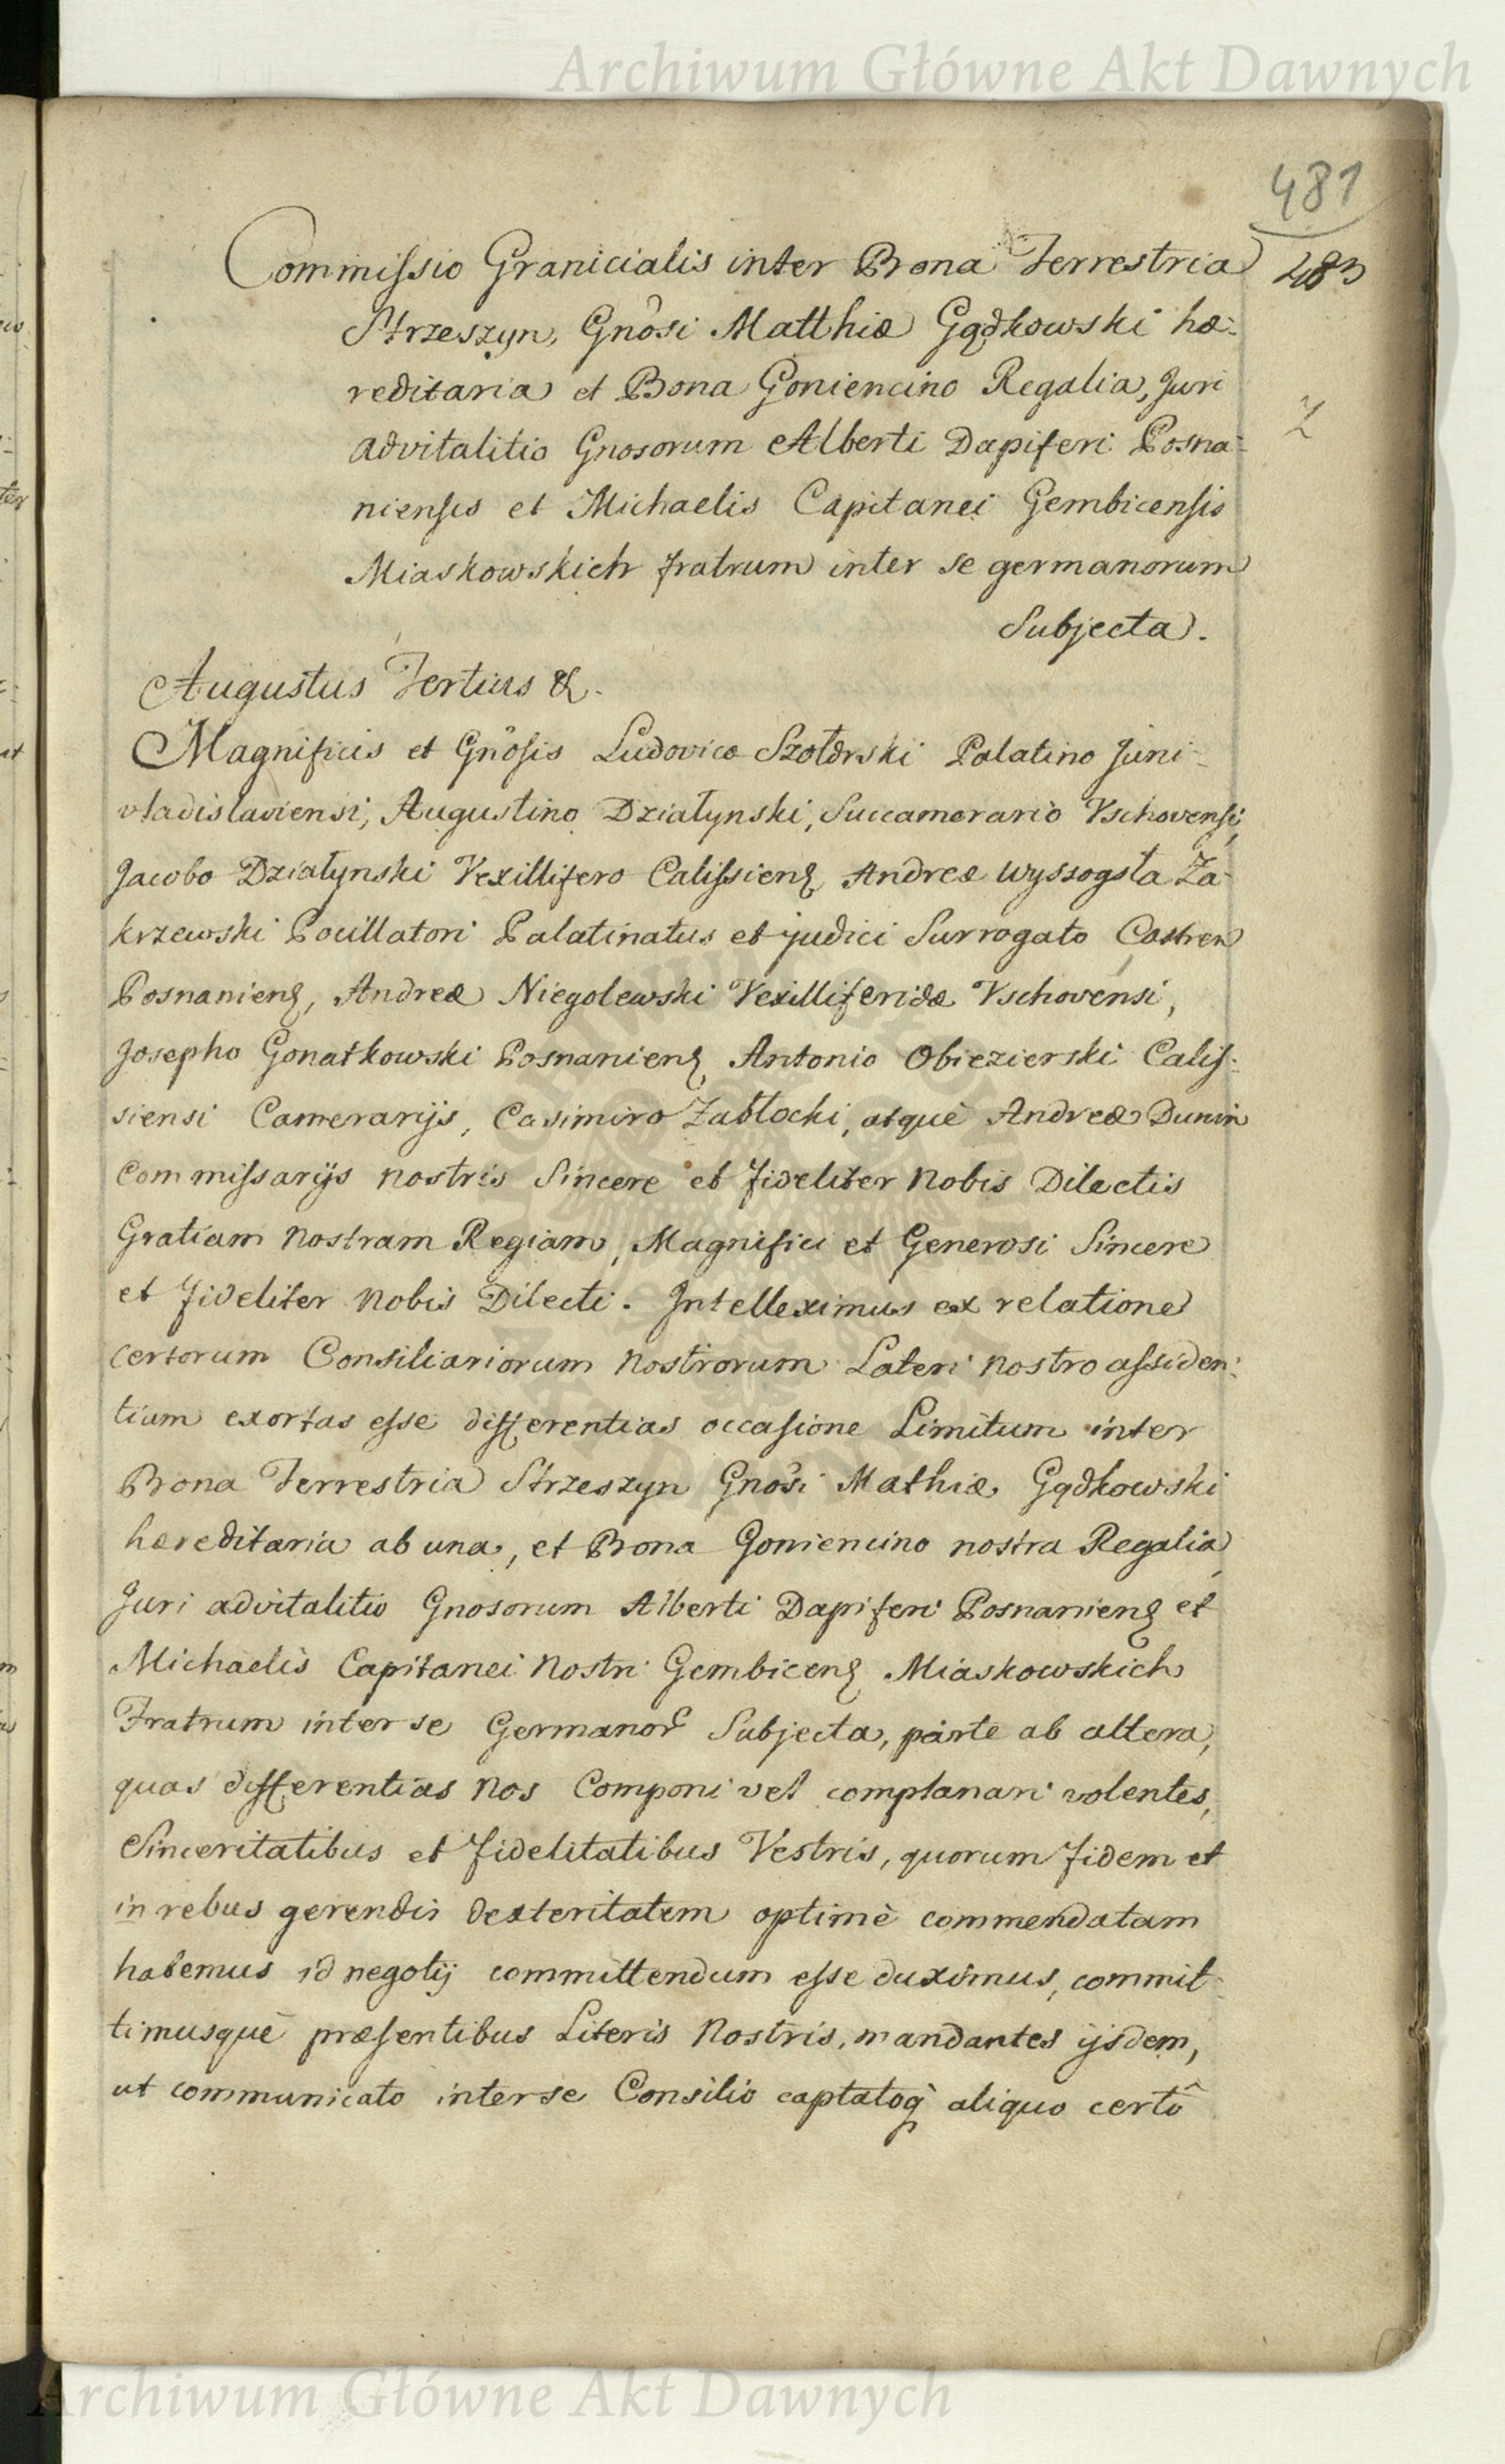 Archiwum Główne Akt Dawnych
481
483
Commissio Granicialis inter Bona Terrestria
Strzeszyn, Gnôsi Matthiæ Gądkowski hæ-
reditaria et Bona Goniencino Regalia, Juri
advitalitio Gnosorum Alberti Dapiferi Posna-
niensis et Michaelis Capitanei Gembicensis
Miaskowskich fratrum inter se germanorum
Subjecta.
Augustus Tertius &.
Magnificis et Gnôsis Ludovico Szołdrski Palatino Juni-
vladislaviensi, Augustino Działynski, Succamerario Vschovensi,
Jacobo Działynski Vexillifero Calissien̄, Andreæ Wyssogota Za-
krzewski Pocillatori Palatinatus et judici Surrogato Castren
Posnanien̄, Andreæ Niegolewski Vexilliferidæ Vschovensi,
Josepho Gonatkowski Posnanien̄, Antonio Obiezierski Calis-
siensi Camerarijs, Casimiro Zabłocki, atquè Andreæ Dunin
Commissarijs nostris Sincere et fideliter Nobis Dilectis
Gratiam Nostram Regiam, Magnifici et Generosi Sincere
et fideliter Nobis Dilecti. Intelleximus ex relatione
certorum Consiliariorum Nostrorum Lateri Nostro assiden-
tium exortas esse differentias occasione Limitum inter
Bona Terrestria Strzeszyn Gnôsi Mathiæ Gądkowski
hæreditaria ab una, et Bona Goniencino nostra Regalia,
Juri advitalitio Gnosorum Alberti Dapiferi Posnanien̄ et
Michaelis Capitanei Nostri Gembicen̄ Miaskowskich
Fratrum inter se Germanor̄ Subjecta, parte ab altera,
quas differentias Nos Componi vel complanari volentes,
Sinceritatibus et fidelitatibus Vestris, quorum fidem et
in rebus gerendis dexteritatem optimè commendatam
habemus id negotij committendum esse duximus, commit-
timusquè præsentibus Literis Nostris, mandantes ijsdem,
ut communicato inter se Consilio captatoq̀ aliquo certô
Archiwum Główne Akt Dawnych